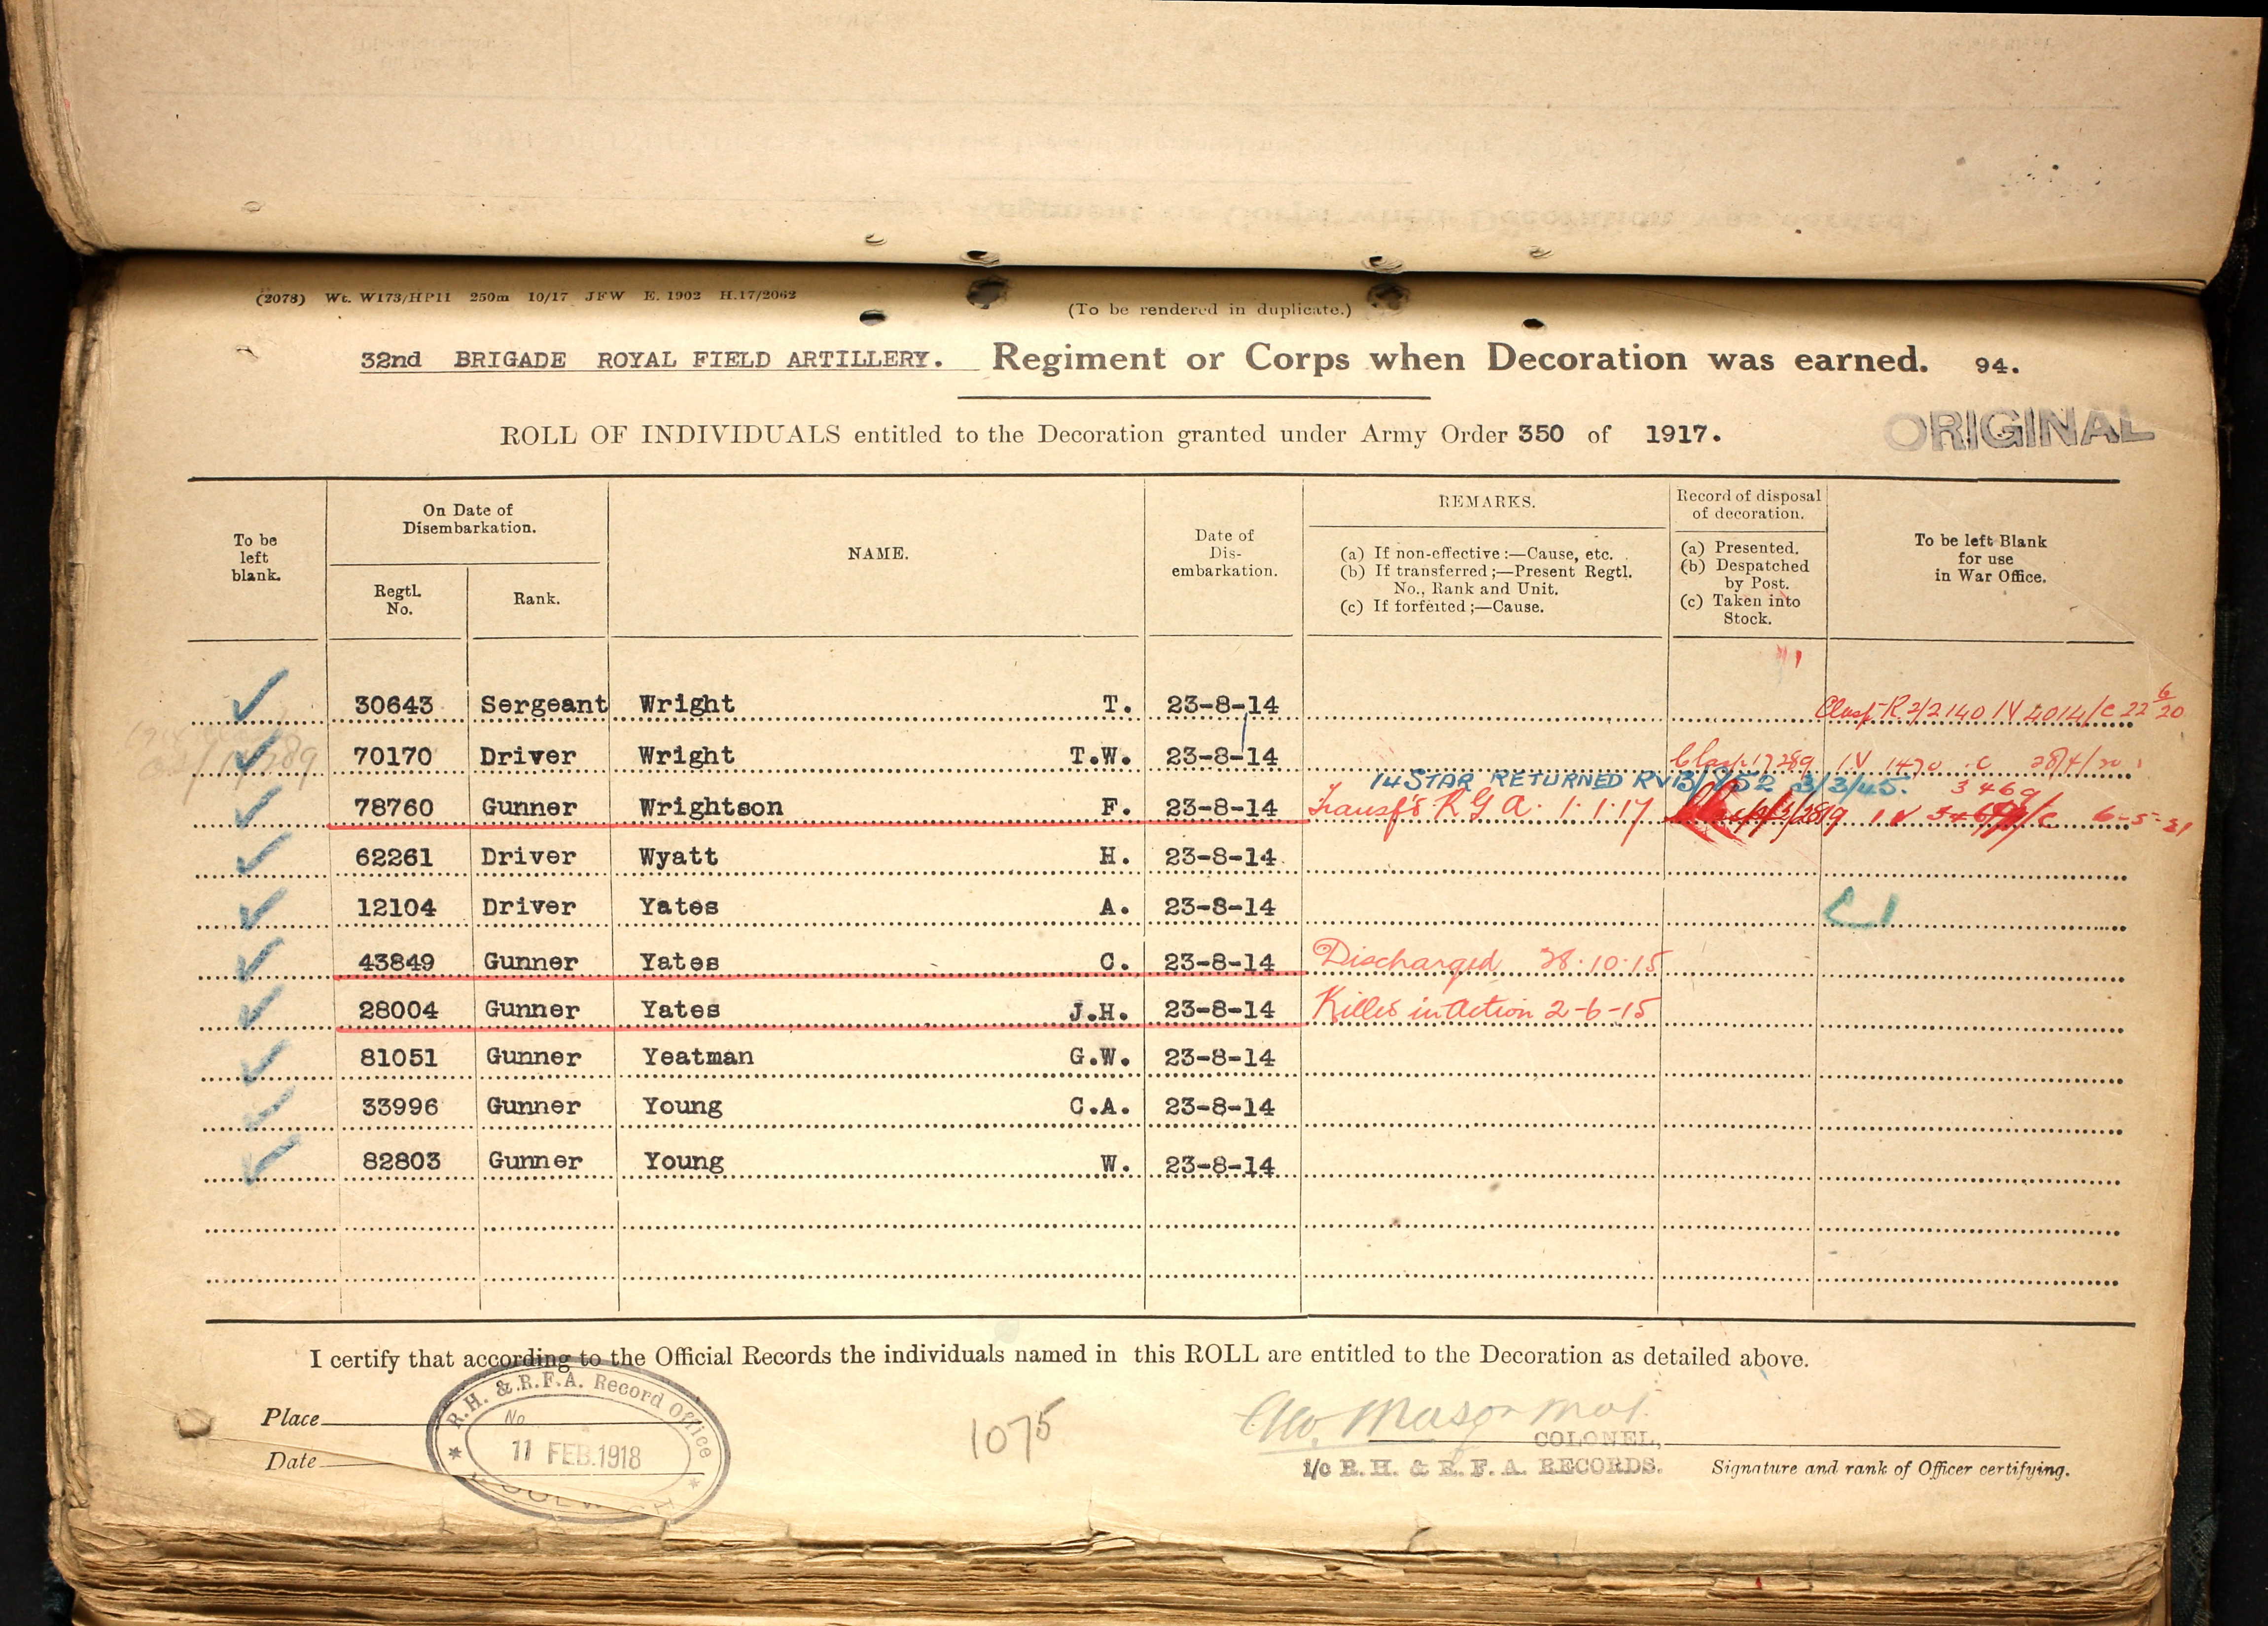 (2078) Wt. W173/HP11 250m 10/17 JFW E. 1902 H.17/2062
(To be rendered in duplicate.)
32nd BRIGADE ROYAL FIELD ARTILLERY. Regiment or Corps when Decoration was earned. 94.
ROLL OF INDIVIDUALS entitled to the Decoration granted under Army Order 350 of 1917.
ORIGINAL
To be left blank.
On Date of Disembarkation.
Regtl. No.
Rank.
NAME.
Date of Dis-embarkation.
REMARKS.
(a) If non-effective :—Cause, etc.
(b) If transferred ;—Present Regtl. No., Rank and Unit.
(c) If forfeited ;—Cause.
Record of disposal of decoration.
(a) Presented.
(b) Despatched by Post.
(c) Taken into Stock.
To be left Blank for use in War Office.
30643 Sergeant Wright T. 23-8-14 Clasp R 2/2140 IV 4014/C 22 6/20
70170 Driver Wright T.W. 23-8-14 Clasp 17289 IV 1470 C 28/4/20
14 STAR RETURNED RV 3/3/45.
78760 Gunner Wrightson F. 23-8-14 Transf'd R G A. 1.1.17 3469 6-5-21
62261 Driver Wyatt H. 23-8-14
12104 Driver Yates A. 23-8-14
43849 Gunner Yates C. 23-8-14 Discharged 28.10.15
28004 Gunner Yates J.H. 23-8-14 Killed in Action 2-6-15
81051 Gunner Yeatman G.W. 23-8-14
33996 Gunner Young C.A. 23-8-14
82803 Gunner Young W. 23-8-14
I certify that according to the Official Records the individuals named in this ROLL are entitled to the Decoration as detailed above.
Place
Date
R.H. & R.F.A. Record Office
No
11 FEB. 1918
1075
Mason
COLONEL,
i/c R. H. & R. F. A. RECORDS.
Signature and rank of Officer certifying.